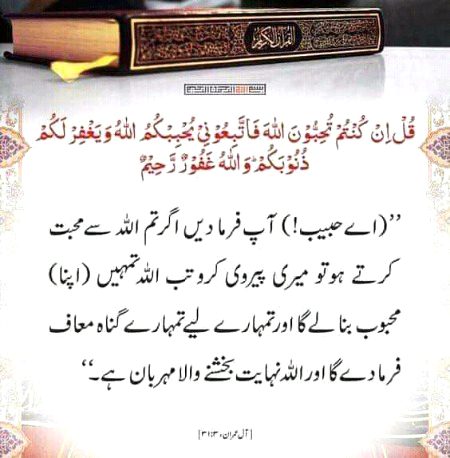 القرآن الكريم
بسم الله الرحمن الرحيم
قُلْ اِنْ كُنْتُمْ تُحِبُّوْنَ اللّٰهَ فَاتَّبِعُوْنِیْ یُحْبِبْكُمُ اللّٰهُ وَیَغْفِرْ لَكُمْ
ذُنُوْبَكُمْ ؕ وَاللّٰهُ غَفُوْرٌ رَّحِیْمٌ
’’(اے حبیب!) آپ فرما دیں اگر تم اللہ سے محبت
کرتے ہو تو میری پیروی کرو تب اللہ تمہیں (اپنا)
محبوب بنا لے گا اور تمہارے لیے تمہارے گناہ معاف
فرما دے گا اور اللہ نہایت بخشنے والا مہربان ہے۔‘‘
[آل عمران، ۳: ۳۱]